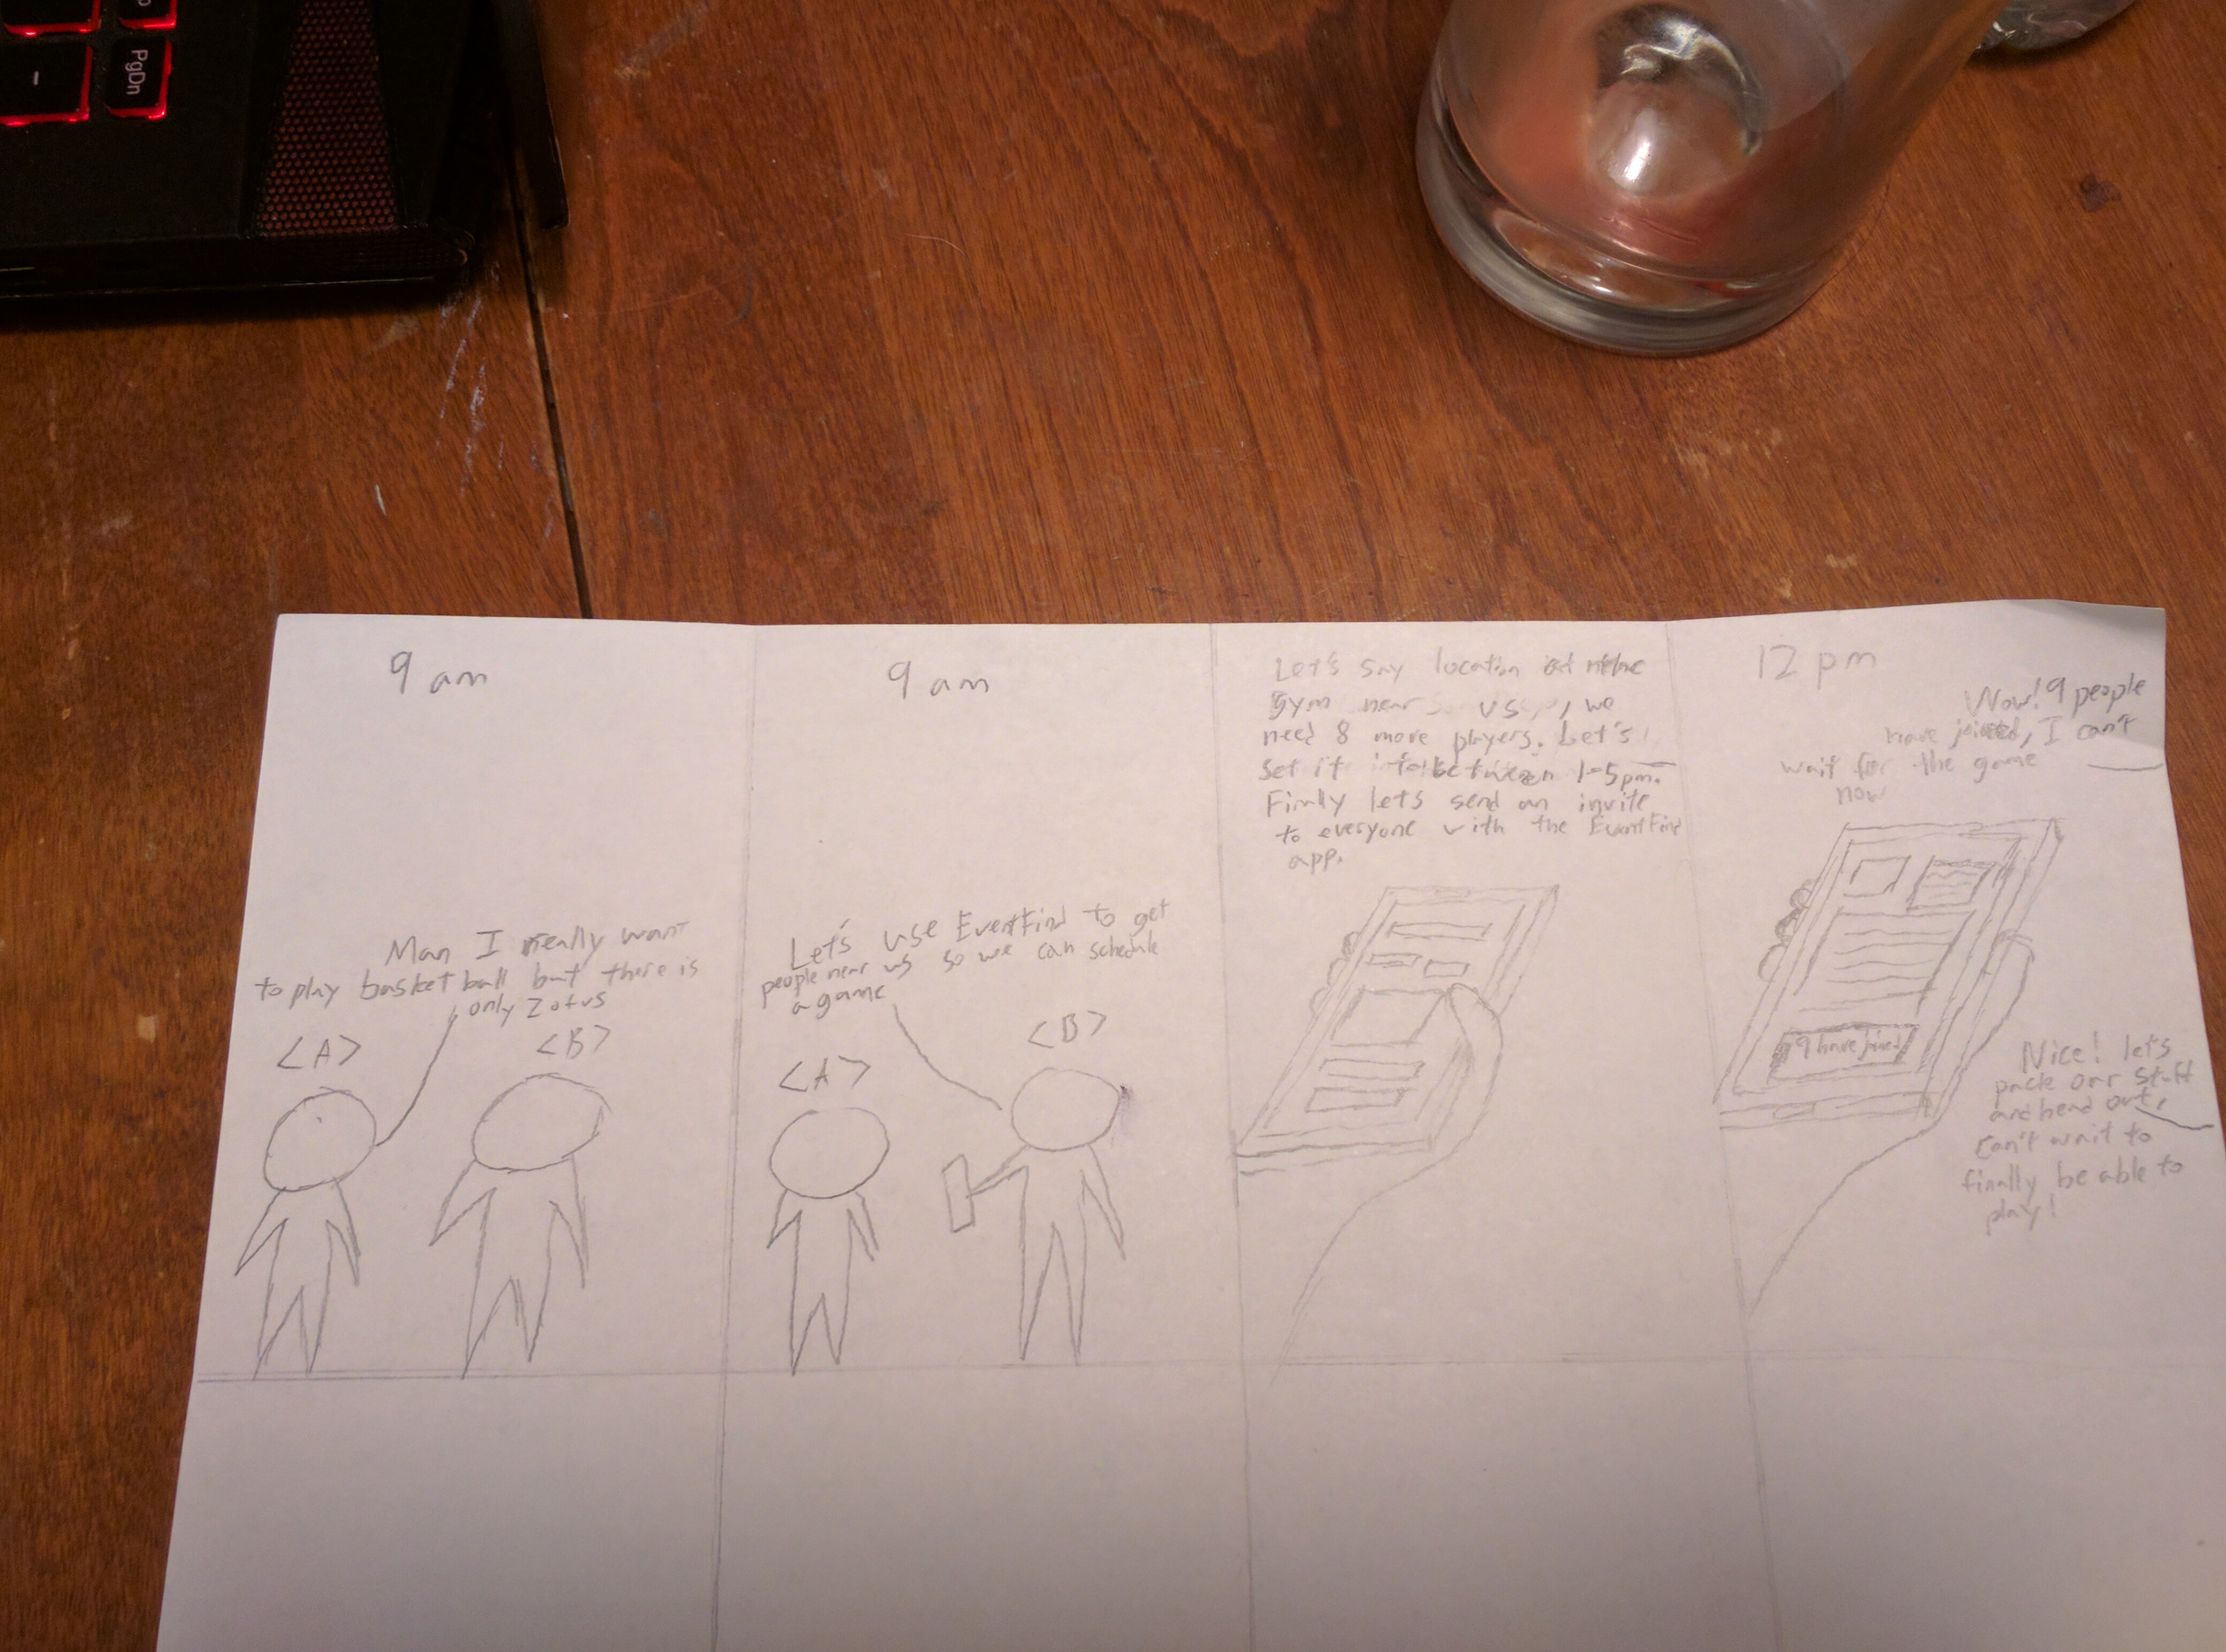 PgDn
-
9 am
Man I really want
to play basket ball but there is
only 2 of us
<A>
<B>
9 am
Let's use EventFind to get
people near us so we can schedule
a game
<A>
<B>
Let's say location
gym near us, we
need 8 more players. Let's
set it between 1-5pm.
Finally lets send an invite
to everyone with the EventFind
app.
12 pm
Wow! 9 people
have joined, I can't
wait for the game
now
9 have joined
Nice! let's
pack our stuff
and head out,
can't wait to
finally be able to
play!